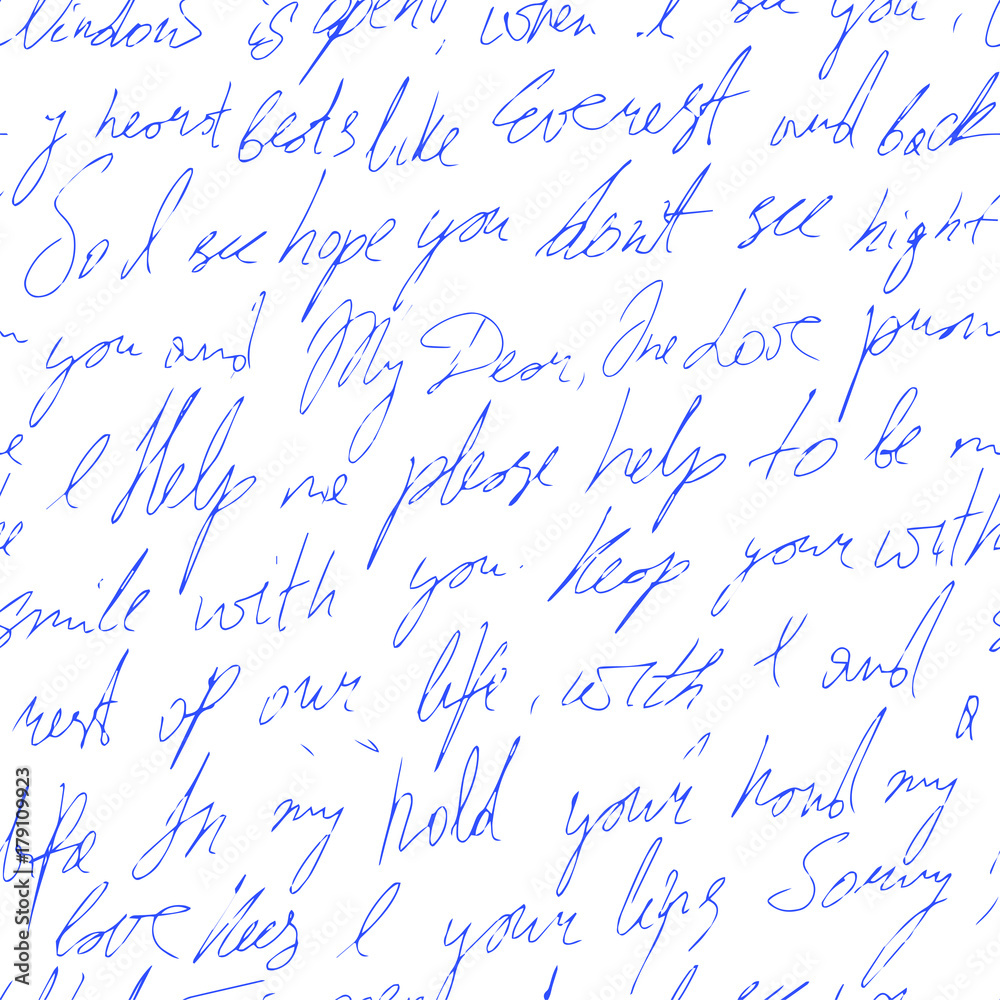 Windows is open, when I see you,
y heart beats like Everest and back
So I see hope you don't see night
you and My Dear, One Love prom
e I Help me please help to be m
smile with you. Keep your with
rest of our life, with I and
life In my hold your hand my a
love kiss I your lips Sorry
Adobe Stock | #179109923